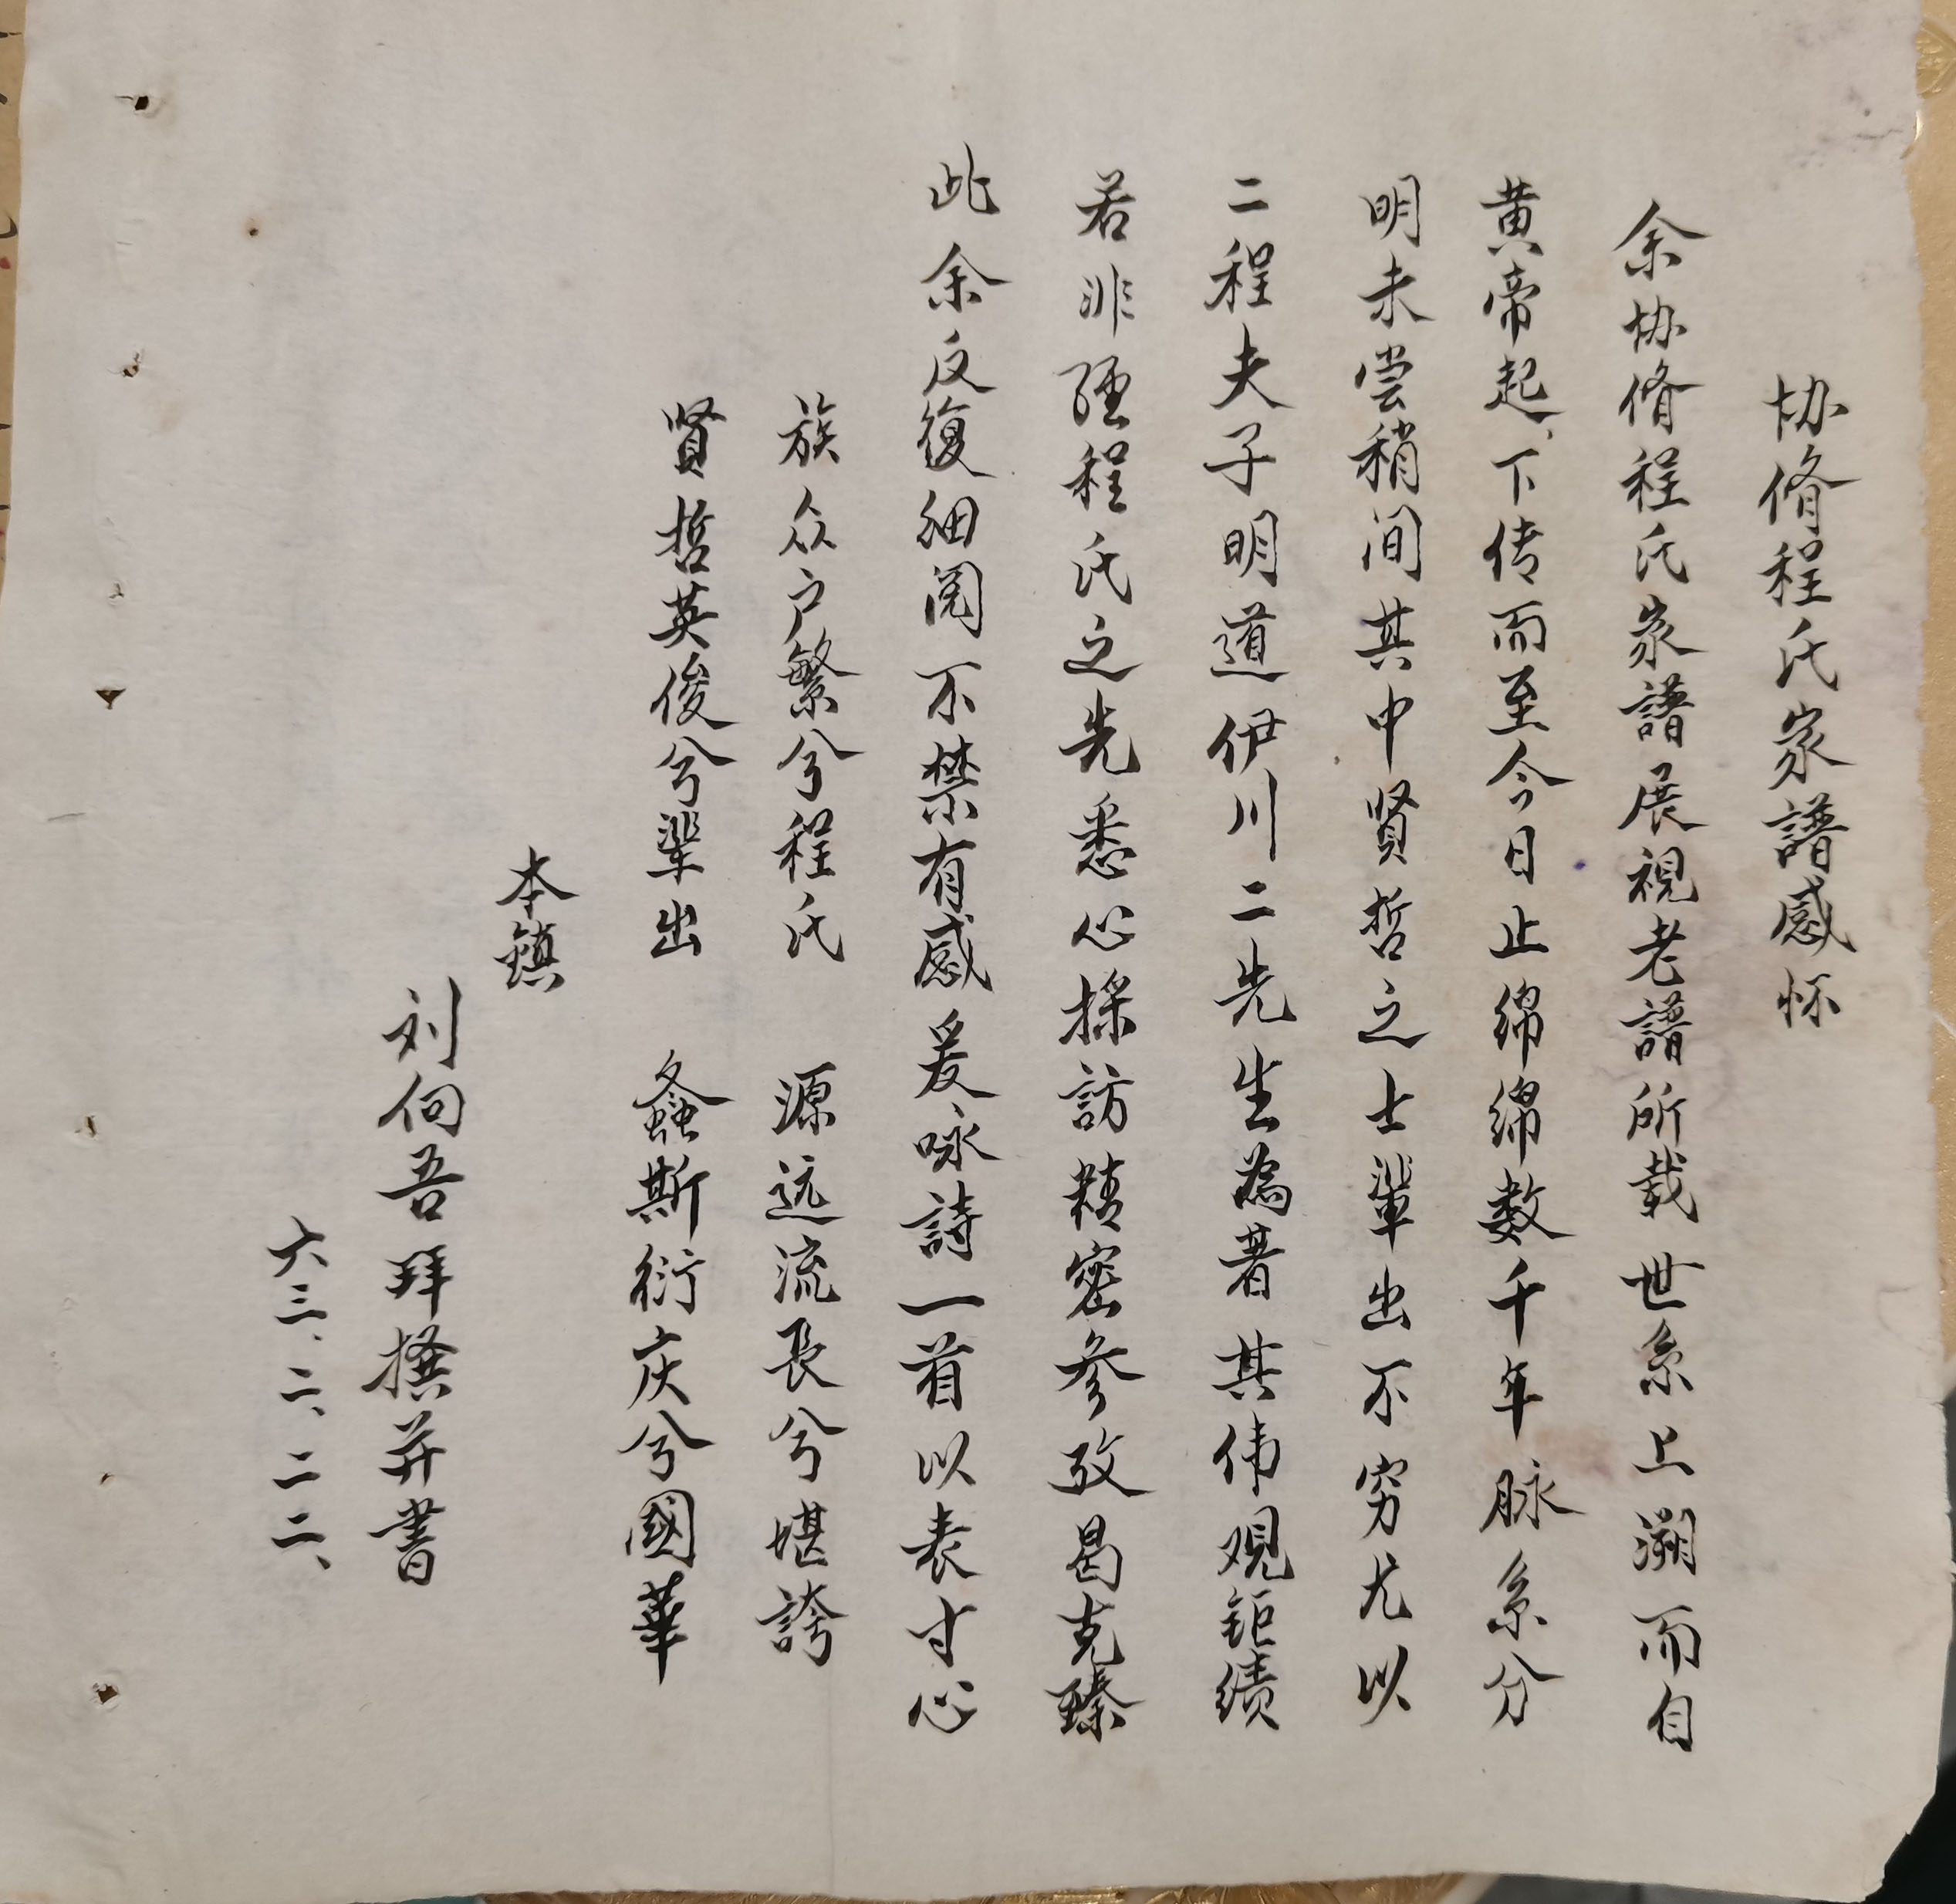 协脩程氏家譜感怀
余协脩程氏家譜展視老譜所载世系上溯而自
黄帝起、下传而至今日止绵绵数千年脉系分
明未尝稍间其中贤哲之士輩出不穷尤以
二程夫子明道伊川二先生為著其伟观钜绩
若非經程氏之先悉心採訪精密参攷曷克臻
此余反復细阅不禁有感爰咏詩一首以表寸心
族众户繁兮程氏　源远流長兮堪誇
賢哲英俊兮輩出　螽斯衍庆兮國華
本鎮
刘向吾拜撰并書
六三、二、二二、